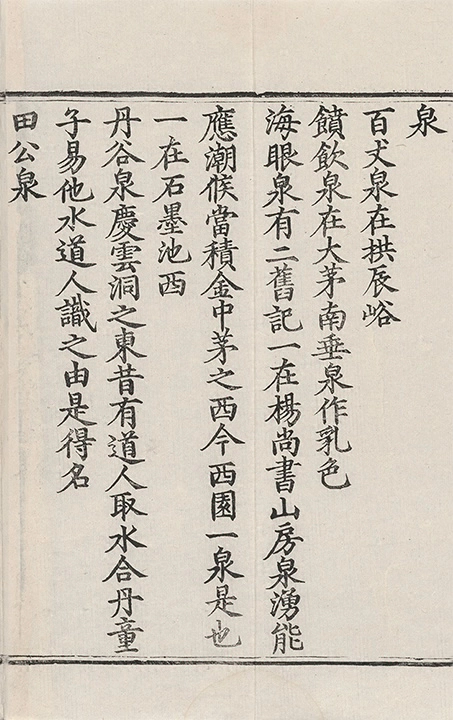 泉
百丈泉在拱辰峪
饙飲泉在大茅南垂泉作乳色
海眼泉有二舊記一在楊尚書山房泉湧能
應潮候當積金中茅之西今西園一泉是也
一在石墨池西
丹谷泉慶雲洞之東昔有道人取水合丹童
子易他水道人識之由是得名
田公泉